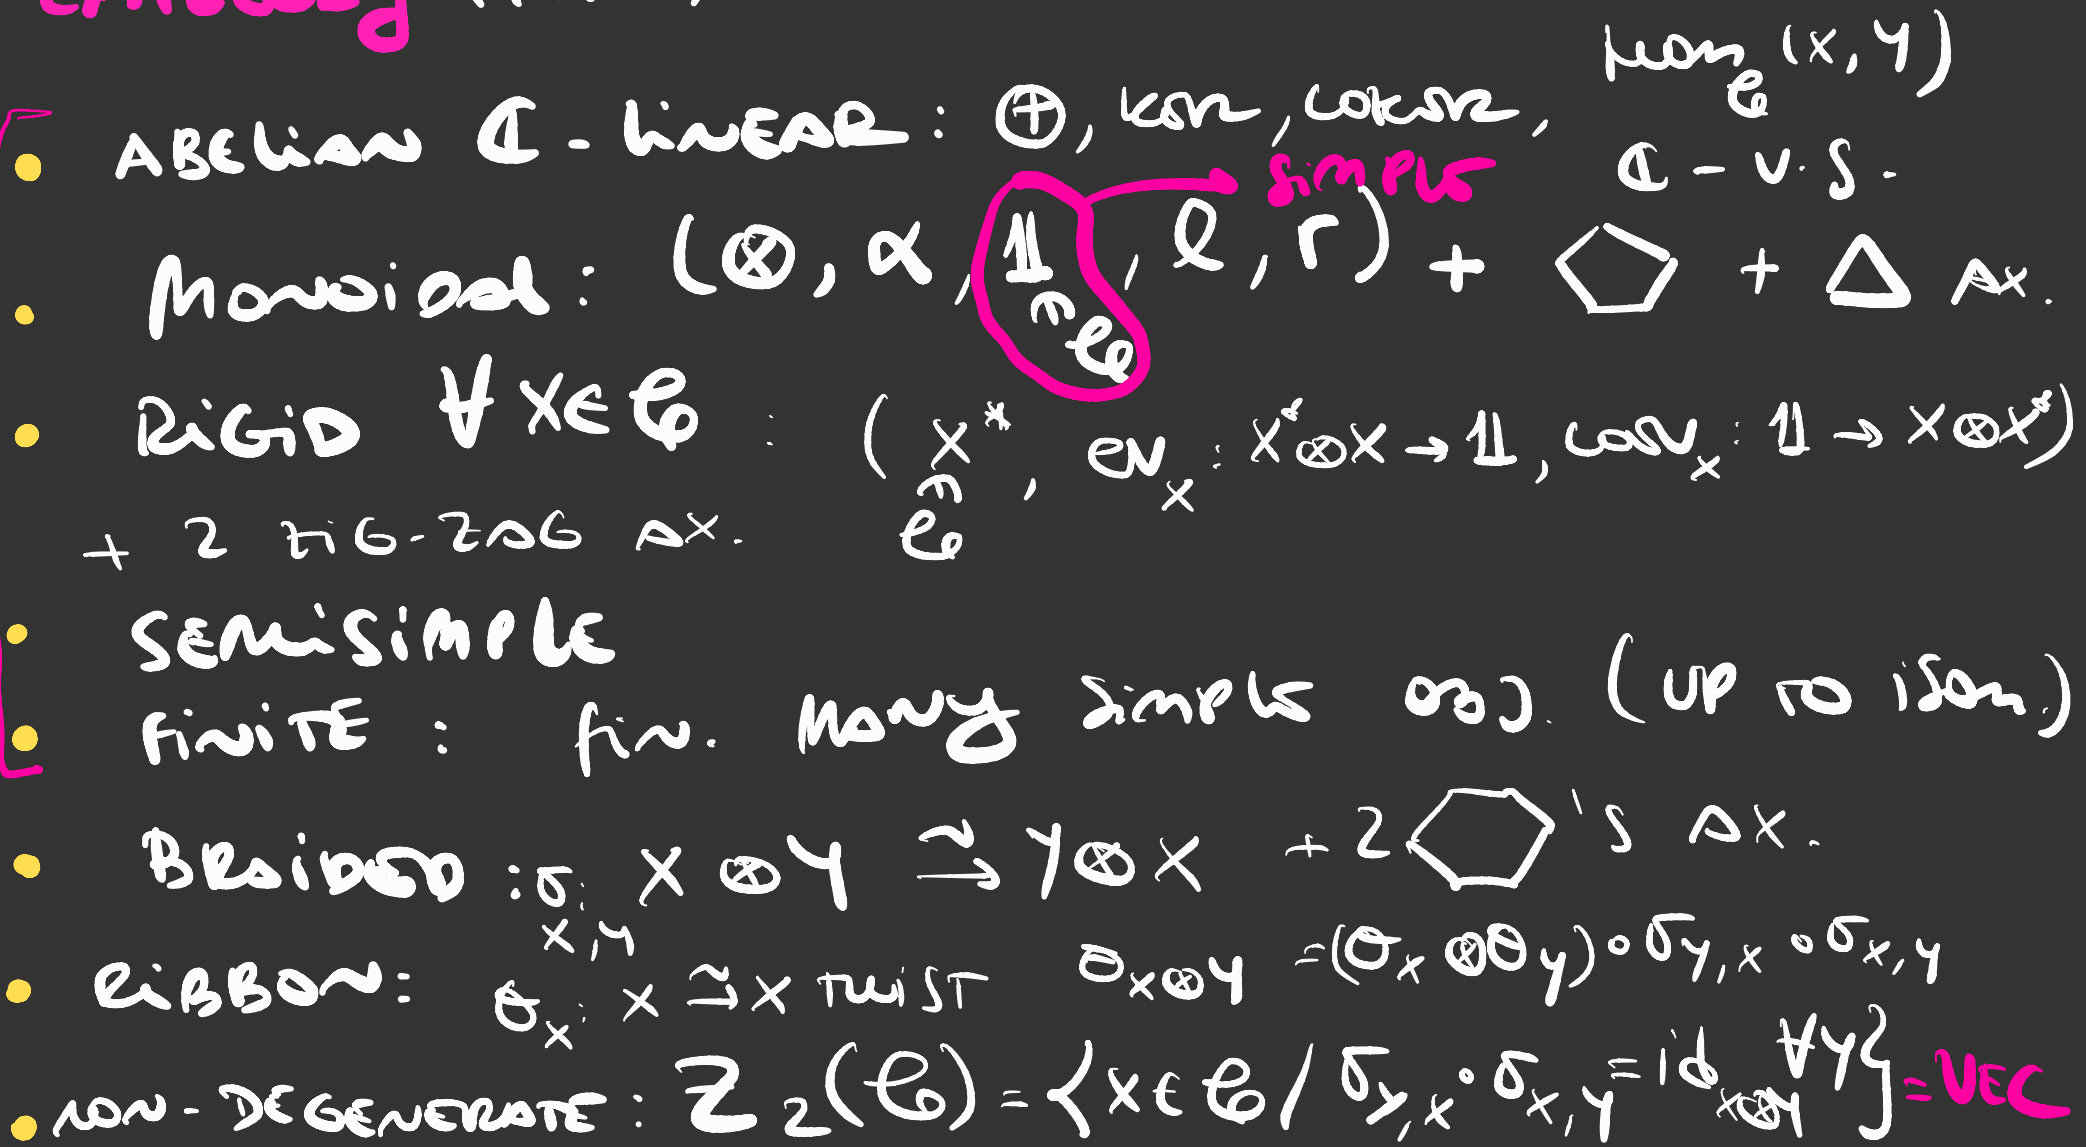 Hom_𝒞(X,Y)
ABELIAN ℂ-LINEAR: ⊕, ker, coker, ℂ-V.S.
SIMPLE
MONOIDAL: (⊗, α, 𝟙∈𝒞, ℓ, r) + ⬠ + △ AX.
RIGID ∀ X∈𝒞 : (X*∈𝒞, ev_X: X*⊗X→𝟙, coev_X: 𝟙→X⊗X*)
+ 2 ZIG-ZAG AX.
SEMISIMPLE
FINITE: fin. MANY SIMPLE OBJ. (UP TO ISOM.)
BRAIDED: σ_{X,Y}: X⊗Y ⥲ Y⊗X + 2 ⬡'S AX.
RIBBON: θ_X: X ⥲ X TWIST θ_{X⊗Y} = (θ_X⊗θ_Y)∘σ_{Y,X}∘σ_{X,Y}
NON-DEGENERATE: Z₂(𝒞) = {X∈𝒞 / σ_{Y,X}∘σ_{X,Y} = id_{X⊗Y} ∀Y} = VEC